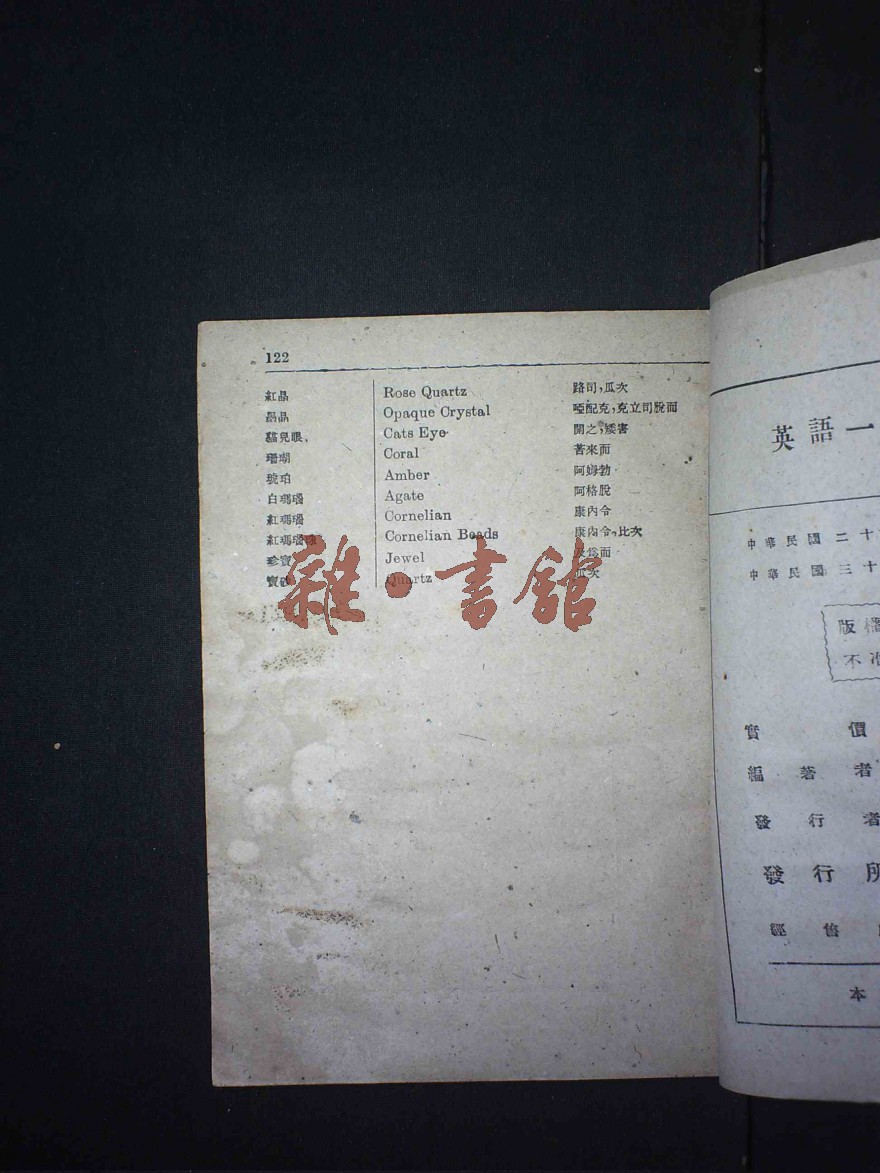 122
紅晶 Rose Quartz 路司，瓜次
墨晶 Opaque Crystal 啞配克，克立司脫而
貓兒眼 Cats Eye 開之，矮害
珊瑚 Coral 苦來而
琥珀 Amber 阿姆勃
白瑪瑙 Agate 阿格脫
紅瑪瑙 Cornelian 康內令
紅瑪瑙珠 Cornelian Beads 康內令，比次
珍寶 Jewel 而
寶 Quartz 瓜次
雜·書館
英語一
中華民國二十
中華民國三十
版權
不准
實價
編著者
發行者
發行所
經售
本